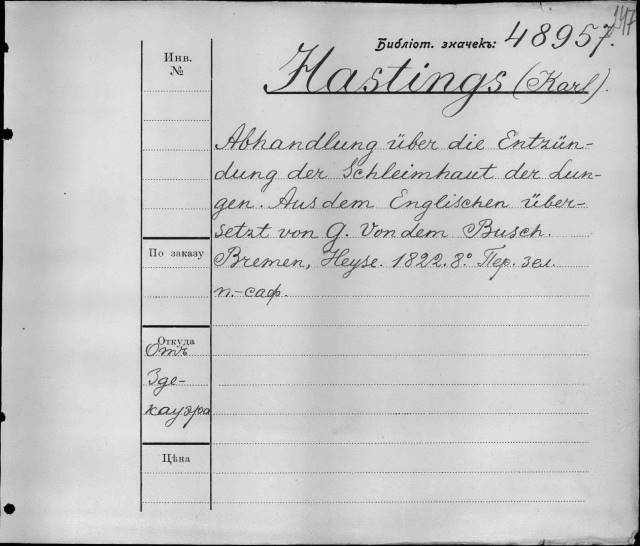 Библіот. значекъ: 48957.
Инв.
№
Hastings (Karl).
Abhandlung über die Entzün-
dung der Schleimhaut der Lun-
gen. Aus dem Englischen über-
setzt von G. Von dem Busch.
Bremen, Heyse. 1822. 8° Пер. зел.
п.-саф.
По заказу
Откуда
Отъ
Зде-
кауэра
Цѣна